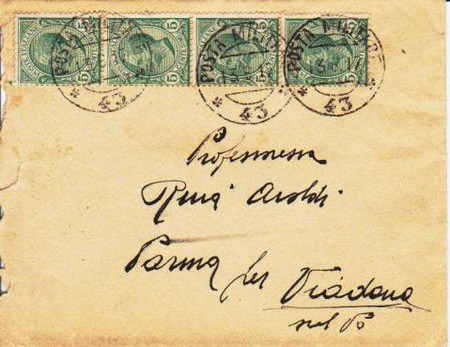 5 5 5 5
POSTA MILITARE
43
POSTA MILITARE
43
POSTA MILITARE
43
Professoressa
Renà Aroldi
Parma per Viadana
sul Po